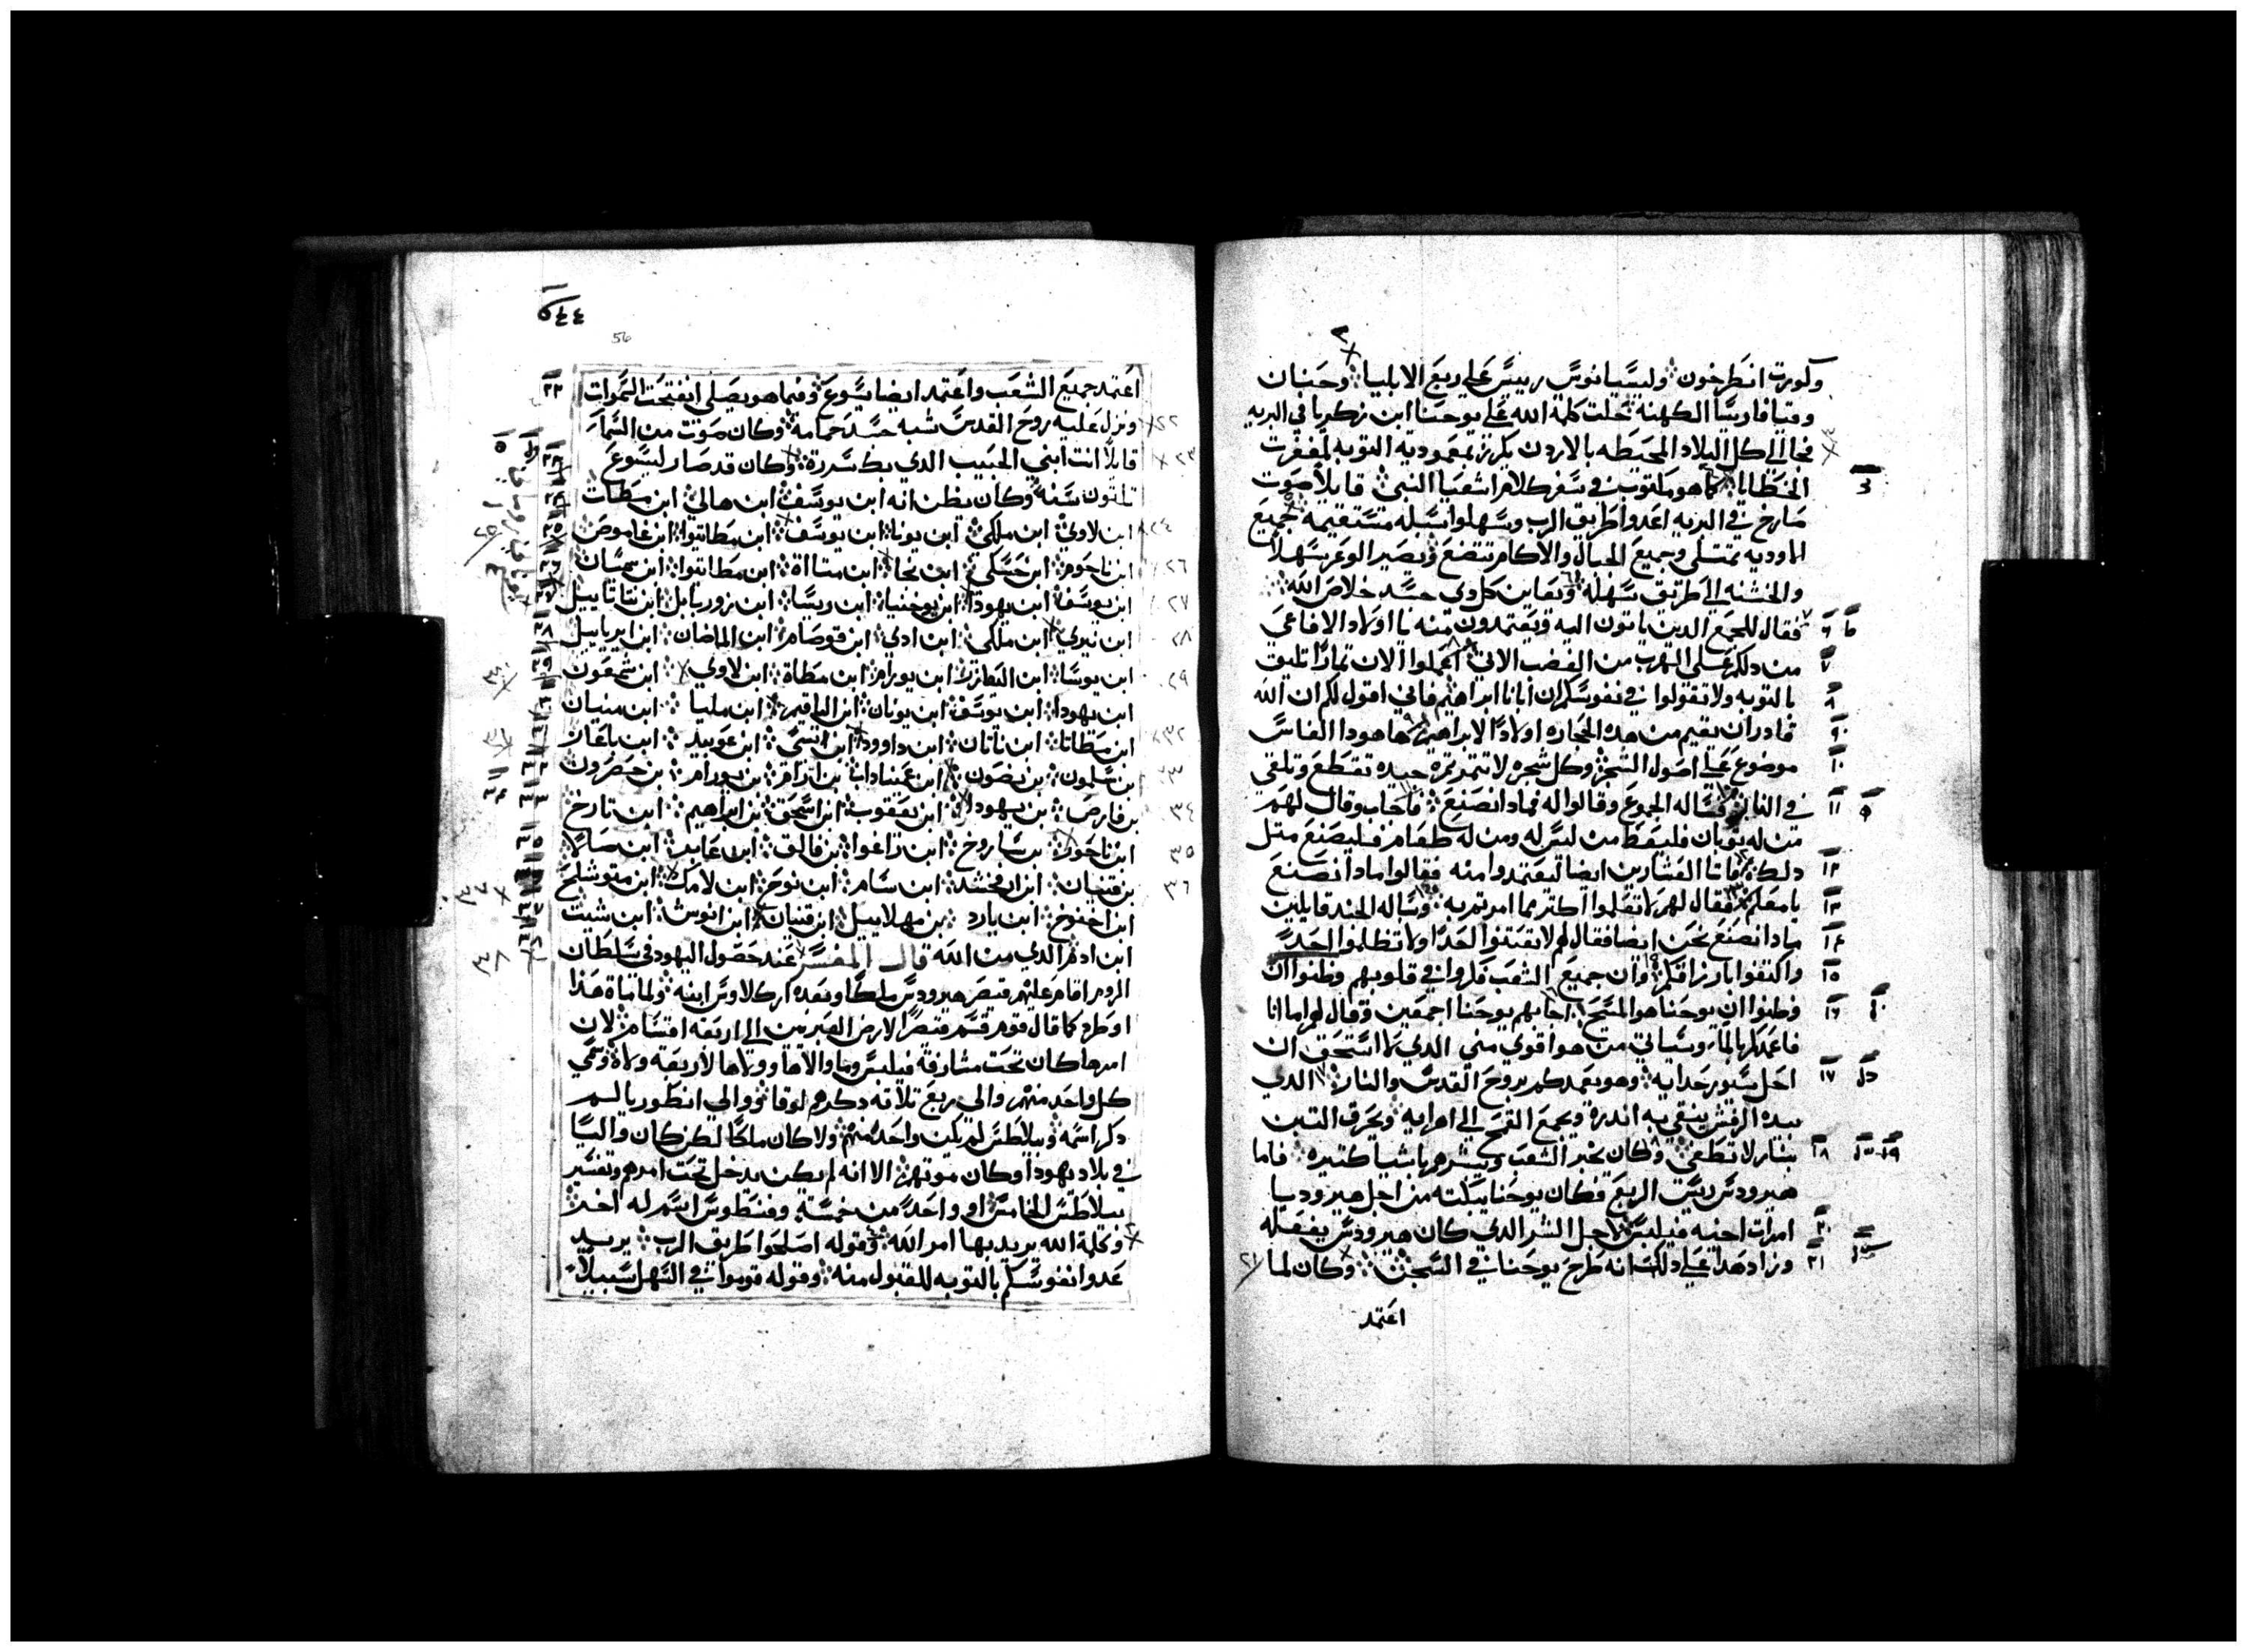 وكورت انطرخون وليسيانوس رييس علي ربع الابليا وحنان
وقيافا رييسا الكهنه حلت كلمة الله علي يوحنا ابن زكريا في البريه
فجا الي كل البلاد المحيطه بالاردن يكرز بمعموديه التوبه لمغفرت
الخطايا كما هو مكتوب في سفر كلام اشعيا النبي قايلا صوت
صارخ في البريه اعدوا طريق الرب وسهلوا سبله مستقيمه جميع
الاوديه تمتلي وجميع الجبال والاكام تتضع ويصير الوعر سهلا
والخشنه الي طريق سهله ويعاين كل دي جسد خلاص الله
فقال للجمع الدين ياتون اليه ويعتمدون منه يا اولاد الافاعي
من دلكم علي الهرب من الغضب الاتي اعملوا الان تمارا تليق
بالتوبه ولا تقولوا في نفوسكم ان ابانا ابراهيم فاني اقول لكم ان الله
قادر ان يقيم من هده الحجاره اولادا لابراهيم ها هودا الفاس
موضوع علي اصول الشجر وكل شجره لا تتمر تمره جيده تقطع وتلقي
في النار فساله الجموع وقالوا له فمادا نصنع فاجاب وقال لهم
من له توبان فليعط من ليس له ومن له طعام فليصنع متل
دلك فاتا العشارين ايضا ليعتمدوا منه فقالوا مادا نصنع
يا معلم فقال لهم لا تفعلوا اكتر مما امرتم به وساله الجند قايلين
مادا نصنع نحن ايضا فقال لهم لا تعنتوا احدا ولا تظلموا احدا
واكتفوا بارزاقكم وان جميع الشعب فكروا في قلوبهم وظنوا ان
وظنوا ان يوحنا هو المسيح اجابهم يوحنا اجمعين وقال لهم اما انا
فاعمدكم بالما وسياتي من هو اقوي مني الدي لا استحق ان
احل سيور حدايه وهو يعمدكم بروح القدس والنار الدي
بيده الرفش ينقي به اندره ويجمع القمح الي اهرايه ويحرق التبن
بنار لا تطفي وكان يخبر الشعب ويبشرهم باشيا كتيره فاما
هيرودس رييس الربع فكان يوحنا يبكته من اجل هيروديا
امرات اخيه فيلبس ولاجل الشر الدي كان هيرودس يفعله
وزاد هدا علي دلك انه طرح يوحنا في السجن وكان لما
اعتمد
٥٤٤
56
اعتمد جميع الشعب واعتمد ايضا يسوع وفيما هو يصلي انفتحت السموات
ونزل عليه روح القدس شبه جسد حمامه وكان صوت من السما
قايلا انت ابني الحبيب الدي بك سررت وكان قد صار ليسوع
تلتون سنه وكان يظن انه ابن يوسف ابن هالي ابن مطتات
ابن لاوي ابن ملكي ابن يونا ابن يوسف ابن مطاتيوا ابن عاموص
ابن ناحوم ابن حسلي ابن نحا ابن متااة ابن مطاتيوا ابن سمسان
ابن يوسف ابن يهودا ابن يوحنيا ابن ريسا ابن زوربابل ابن تتاتاييل
ابن نيري ابن ملكي ابن ادي ابن قوصام ابن الماضان ابن ايرياييل
ابن يوسا ابن اليعازر ابن يورام ابن مطاة ابن لاوي ابن شمعون
ابن يهودا ابن يوسف ابن يونان ابن الياقيم ابن مليا ابن منيان
ابن مطاتا ابن ناتان ابن داوود ابن ايسي ابن عوبيد ابن باعاز
بن سلمون بن نصون ابن عميناداب بن ارام بن يورام بن حصرون
بن فارص بن يهودا ابن يعقوب ابن اسحق بن ابراهيم ابن تارخ
ابن ناحور بن ساروخ ابن راغوا بن فالق ابن عابر ابن صالا
بن قينان ابن ارفخشد ابن سام ابن نوح ابن لامك ابن متوشلح
ابن اخنوخ ابن يارد بن مهلاييل ابن قينان ابن انوش ابن شيت
ابن ادم الدي من الله قال المفسر عند حصول اليهود في سلطان
الروم اقام عليهم قيصر هيرودس ملكا وبعده اركلاوس ابنه ولما ماة هذا
او طرد كما قال قوم قسم قيصر الارض العبريين الي اربعة اقسام لان
امرها كان تحت مشارفة فيلبس وما والاها وولاها لاربعة ولاة وسمي
كل واحد منهم والي ربع تلاته دكرهم لوقا ووالي انطوريا لم
دكر اسمه وبيلاطس لم يكن واحد منهم ولا كان ملكا لكن كان واليا
في بلاد يهودا وكان موتهم الا انه لم يكن يدخل تحت امرهم وتفسير
بيلاطس الخامس او واحد من خمسة وفنطوس اسم له اخر
وكلمة الله يريد بها امر الله وقوله اصلحوا طريق الرب يريد
عدوا نفوسكم بالتوبه للقبول منه وقوله قوموا في السهل سبيلا